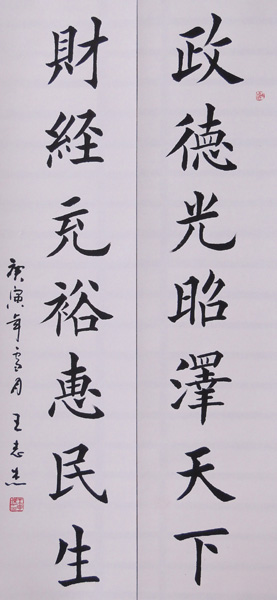 政德光昭澤天下
財経充裕惠民生
庚寅年雪月王志杰